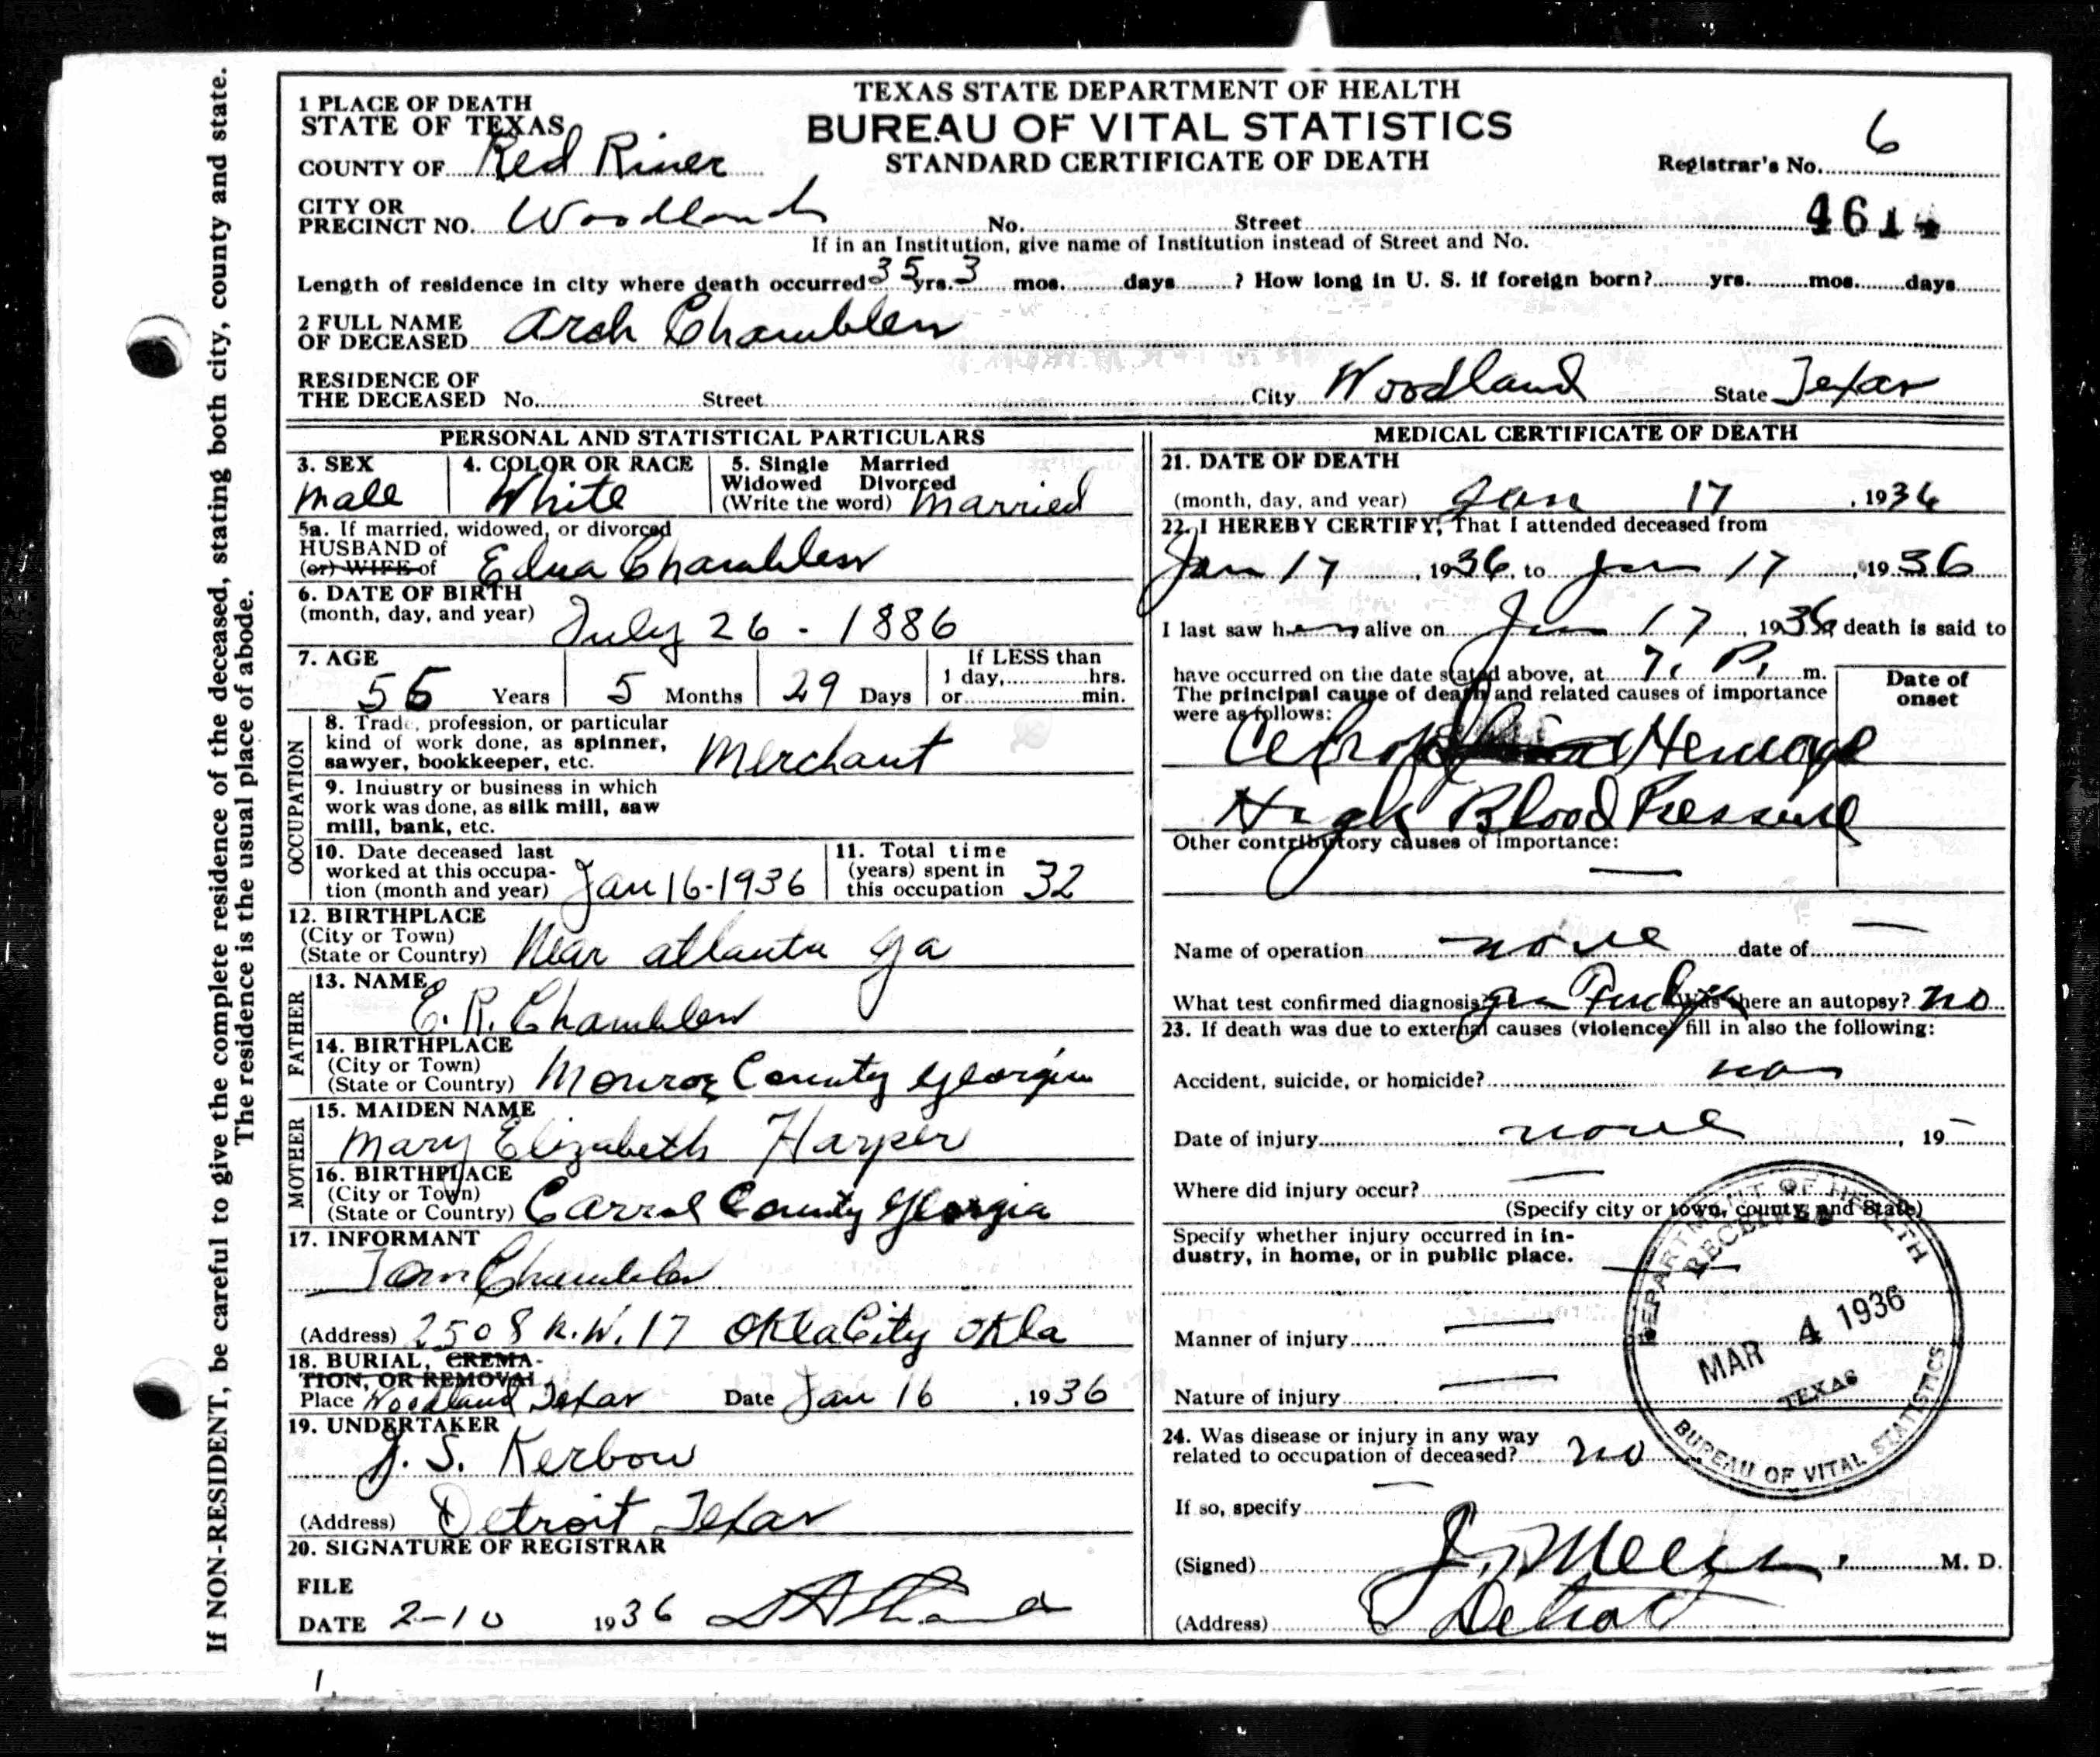 If NON-RESIDENT, be careful to give the complete residence of the deceased, stating both city, county and state.
The residence is the usual place of abode.
TEXAS STATE DEPARTMENT OF HEALTH
BUREAU OF VITAL STATISTICS
STANDARD CERTIFICATE OF DEATH
1 PLACE OF DEATH
STATE OF TEXAS
COUNTY OF Red River
Registrar's No. 6
CITY OR
PRECINCT NO. Woodland No. Street
4614
If in an Institution, give name of Institution instead of Street and No.
Length of residence in city where death occurred 35 yrs. 3 mos. days ? How long in U. S. if foreign born? yrs. mos. days
2 FULL NAME
OF DECEASED Arch Chambless
RESIDENCE OF
THE DECEASED No. Street City Woodland State Texas
PERSONAL AND STATISTICAL PARTICULARS
3. SEX
Male
4. COLOR OR RACE
White
5. Single Married
Widowed Divorced
(Write the word) Married
5a. If married, widowed, or divorced
HUSBAND of
(or) WIFE of Edna Chambless
6. DATE OF BIRTH
(month, day, and year) July 26 - 1886
7. AGE
Years 5 Months 29 Days
If LESS than
1 day, hrs.
or min.
OCCUPATION
8. Trade, profession, or particular
kind of work done, as spinner,
sawyer, bookkeeper, etc. Merchant
9. Industry or business in which
work was done, as silk mill, saw
mill, bank, etc.
10. Date deceased last
worked at this occupa-
tion (month and year) Jan 16-1936
11. Total time
(years) spent in
this occupation 32
12. BIRTHPLACE
(City or Town)
(State or Country) Near Atlanta Ga
FATHER
13. NAME
E. R. Chambless
14. BIRTHPLACE
(City or Town)
(State or Country) Monroe County Georgia
MOTHER
15. MAIDEN NAME
Mary Elizabeth Harper
16. BIRTHPLACE
(City or Town)
(State or Country) Carrol County Georgia
17. INFORMANT
Tom Chambless
(Address) 2508 N.W. 17 Okla City Okla
18. BURIAL, CREMA-
TION, OR REMOVAL
Place Woodland Texas Date Jan 16, 1936
19. UNDERTAKER
J. S. Kerbow
(Address) Detroit Texas
20. SIGNATURE OF REGISTRAR
FILE
DATE 2-10 1936
MEDICAL CERTIFICATE OF DEATH
21. DATE OF DEATH
(month, day, and year) Jan 17, 1936
22. I HEREBY CERTIFY, That I attended deceased from
Jan 17, 1936, to Jan 17, 1936
I last saw h alive on Jan 17, 1936, death is said to
have occurred on the date stated above, at 7. P. m.
The principal cause of death and related causes of importance
were as follows:
Date of
onset
Hemorage
High Blood Pressure
Other contributory causes of importance:
—
Name of operation none date of —
What test confirmed diagnosis? Was there an autopsy? no
23. If death was due to external causes (violence) fill in also the following:
Accident, suicide, or homicide?
Date of injury none, 19-
Where did injury occur? —
(Specify city or town, county, and State)
Specify whether injury occurred in in-
dustry, in home, or in public place. —
Manner of injury —
Nature of injury —
24. Was disease or injury in any way
related to occupation of deceased? no
If so, specify —
(Signed) M. D.
(Address) Detroit
DEPARTMENT OF HEALTH
RECEIVED
MAR 4 1936
TEXAS
BUREAU OF VITAL STATISTICS
1.